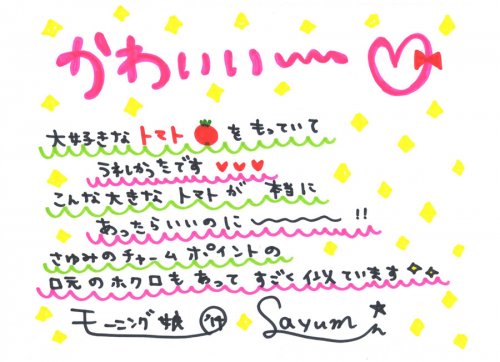 かわいいー
大好きなトマトをもっていて
うれしかったです♥♥♥
こんな大きなトマトが本当に
あったらいいのに〜!!
さゆみのチャームポイントの
口元のホクロもあってすごく似ています
モーニング娘 '14
Sayumi